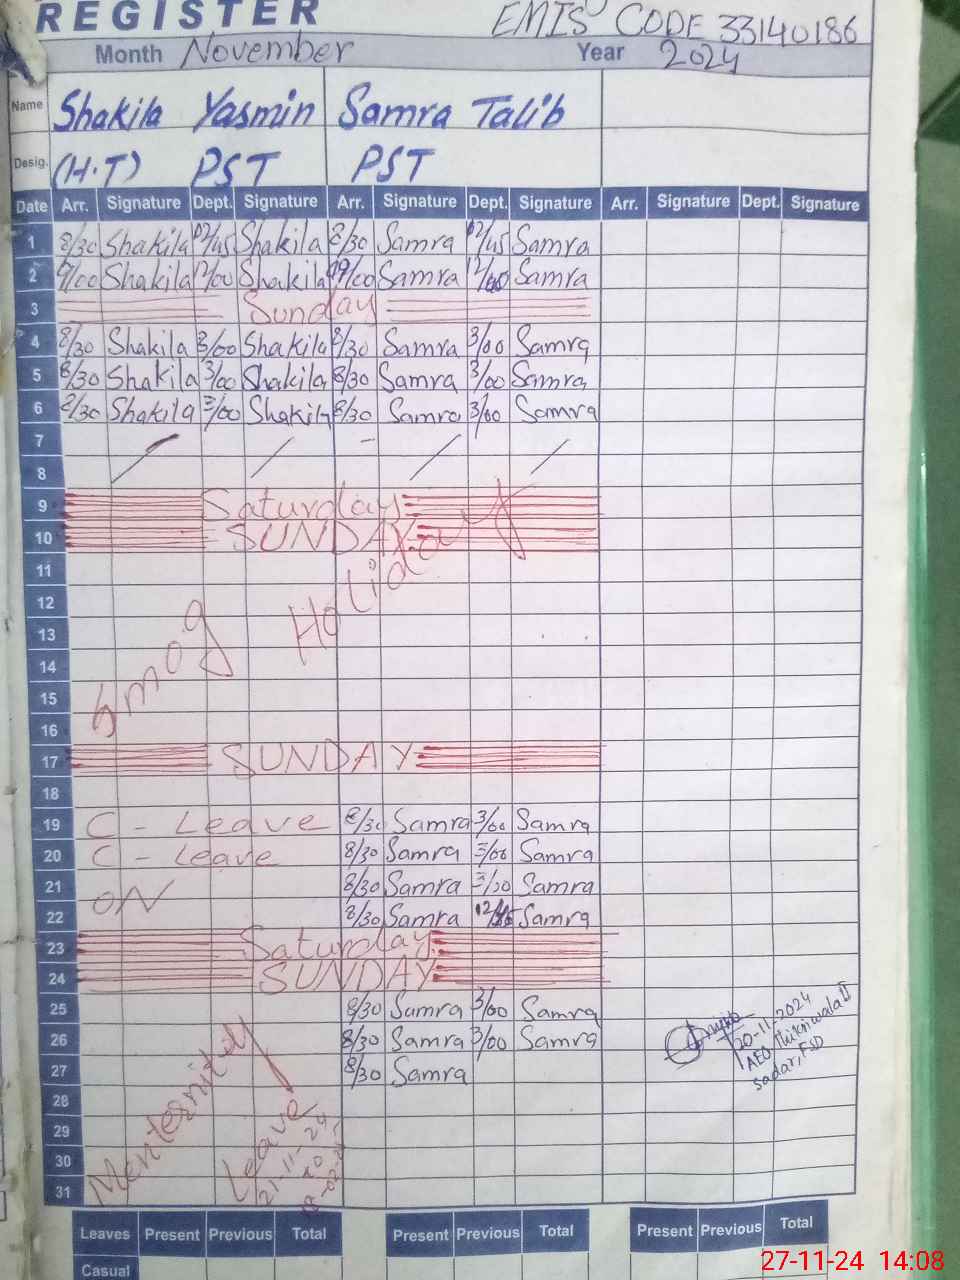 REGISTER
EMIS CODE 33140186
Month November Year 2024
Name Shakila Yasmin Samra Talib
Desig. (H.T) PST PST
Date Arr. Signature Dept. Signature Arr. Signature Dept. Signature Arr. Signature Dept. Signature
1 8/30 Shakila 12/45 Shakila 8/30 Samra 12/45 Samra
2 9/00 Shakila 12/00 Shakila 09/00 Samra 12/00 Samra
3 Sunday
4 8/30 Shakila 3/00 Shakila 8/30 Samra 3/00 Samra
5 8/30 Shakila 3/00 Shakila 8/30 Samra 3/00 Samra
6 8/30 Shakila 3/00 Shakila 8/30 Samra 3/00 Samra
7
8
9 Saturday
10 SUNDAY
11
12
13
14
15
16
Smog Holiday
17 SUNDAY
18
19 C - Leave 8/30 Samra 3/00 Samra
20 C - Leave 8/30 Samra 3/00 Samra
21 8/30 Samra 3/00 Samra
ON
22 8/30 Samra 12/45 Samra
23 Saturday
24 SUNDAY
25 8/30 Samra 3/00 Samra
26 8/30 Samra 3/00 Samra
27 8/30 Samra
28
29
30
31
Menternity Leave
21-11-24
to
20-11-2024
AEO Thikriwala II
Sadar, FSD
Leaves Present Previous Total Present Previous Total Present Previous Total
Casual
27-11-24 14:08